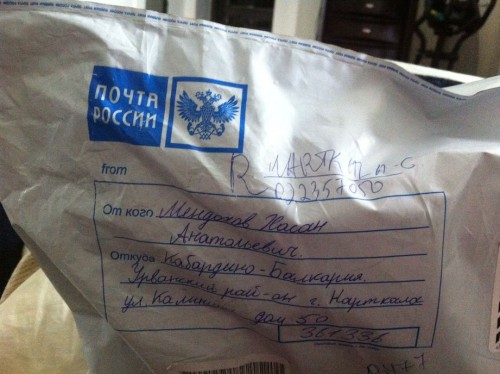 ПОЧТА
РОССИИ
from
От кого Мендохов Хасан
Анатольевич.
Откуда Кабардино-Балкария.
Урванский рай-он г. Нарткала
ул. Калинина
дом 50
361336